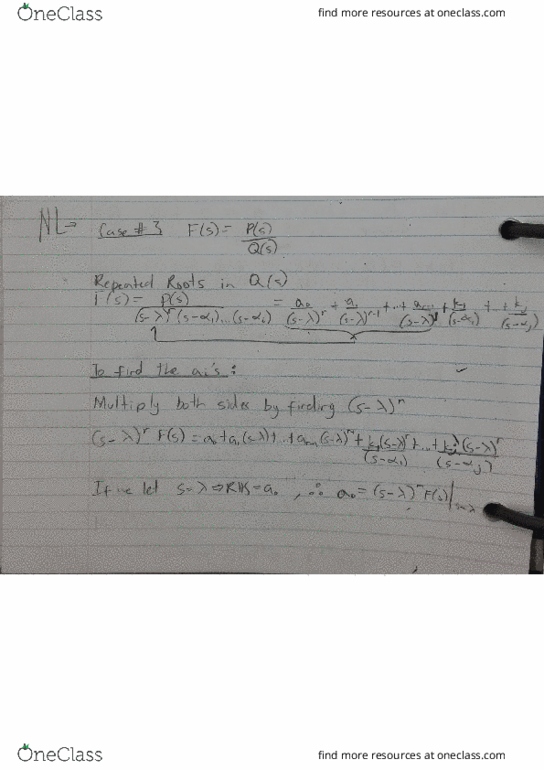 OneClass
find more resources at oneclass.com
NL→ Case #3 F(s) = P(s)/Q(s)
Repeated Roots in Q(s)
F(s) = P(s)/((s-λ)^r (s-α₁)...(s-α_j)) = a₀/(s-λ)^r + a₁/(s-λ)^(r-1) + ... + k₁/(s-α₁) + ... + k_j/(s-α_j)
To find the ai's:
Multiply both sides by finding (s-λ)^n
(s-λ)^r F(s) = a₀ + a₁(s-λ) + ... + (s-λ)^n + k₁(s-λ)^r/(s-α₁) + ... + (s-λ)^r/(s-α_j)
If we let s-λ ⇒ RHS = a₀, ∴ a₀ = (s-λ)^n F(s)|s=λ
OneClass
find more resources at oneclass.com